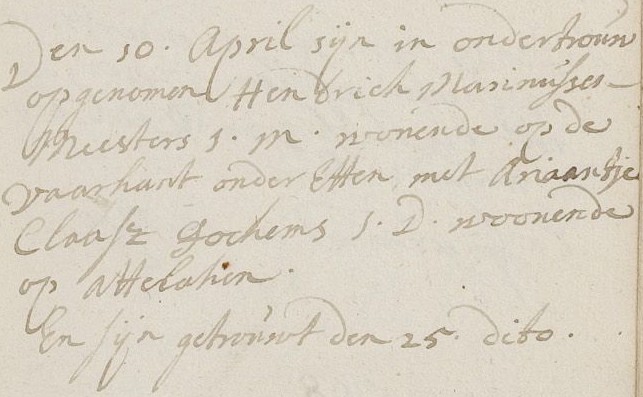 Den 10. April sijn in ondertrouw
opgenomen Hendrick Marinusse
Meesters J. M. wonende op de
vaarkant onder Etten, met Ariaantje
Claasz Jochems J. D. woonende
op Attelaken.
En sijn getrouwt den 25. dito.